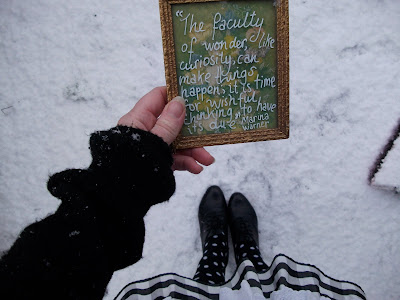 "The faculty
of wonder, like
curiosity, can
make things
happen; it is time
for wishful
thinking to have
its due"
Marina
Warner